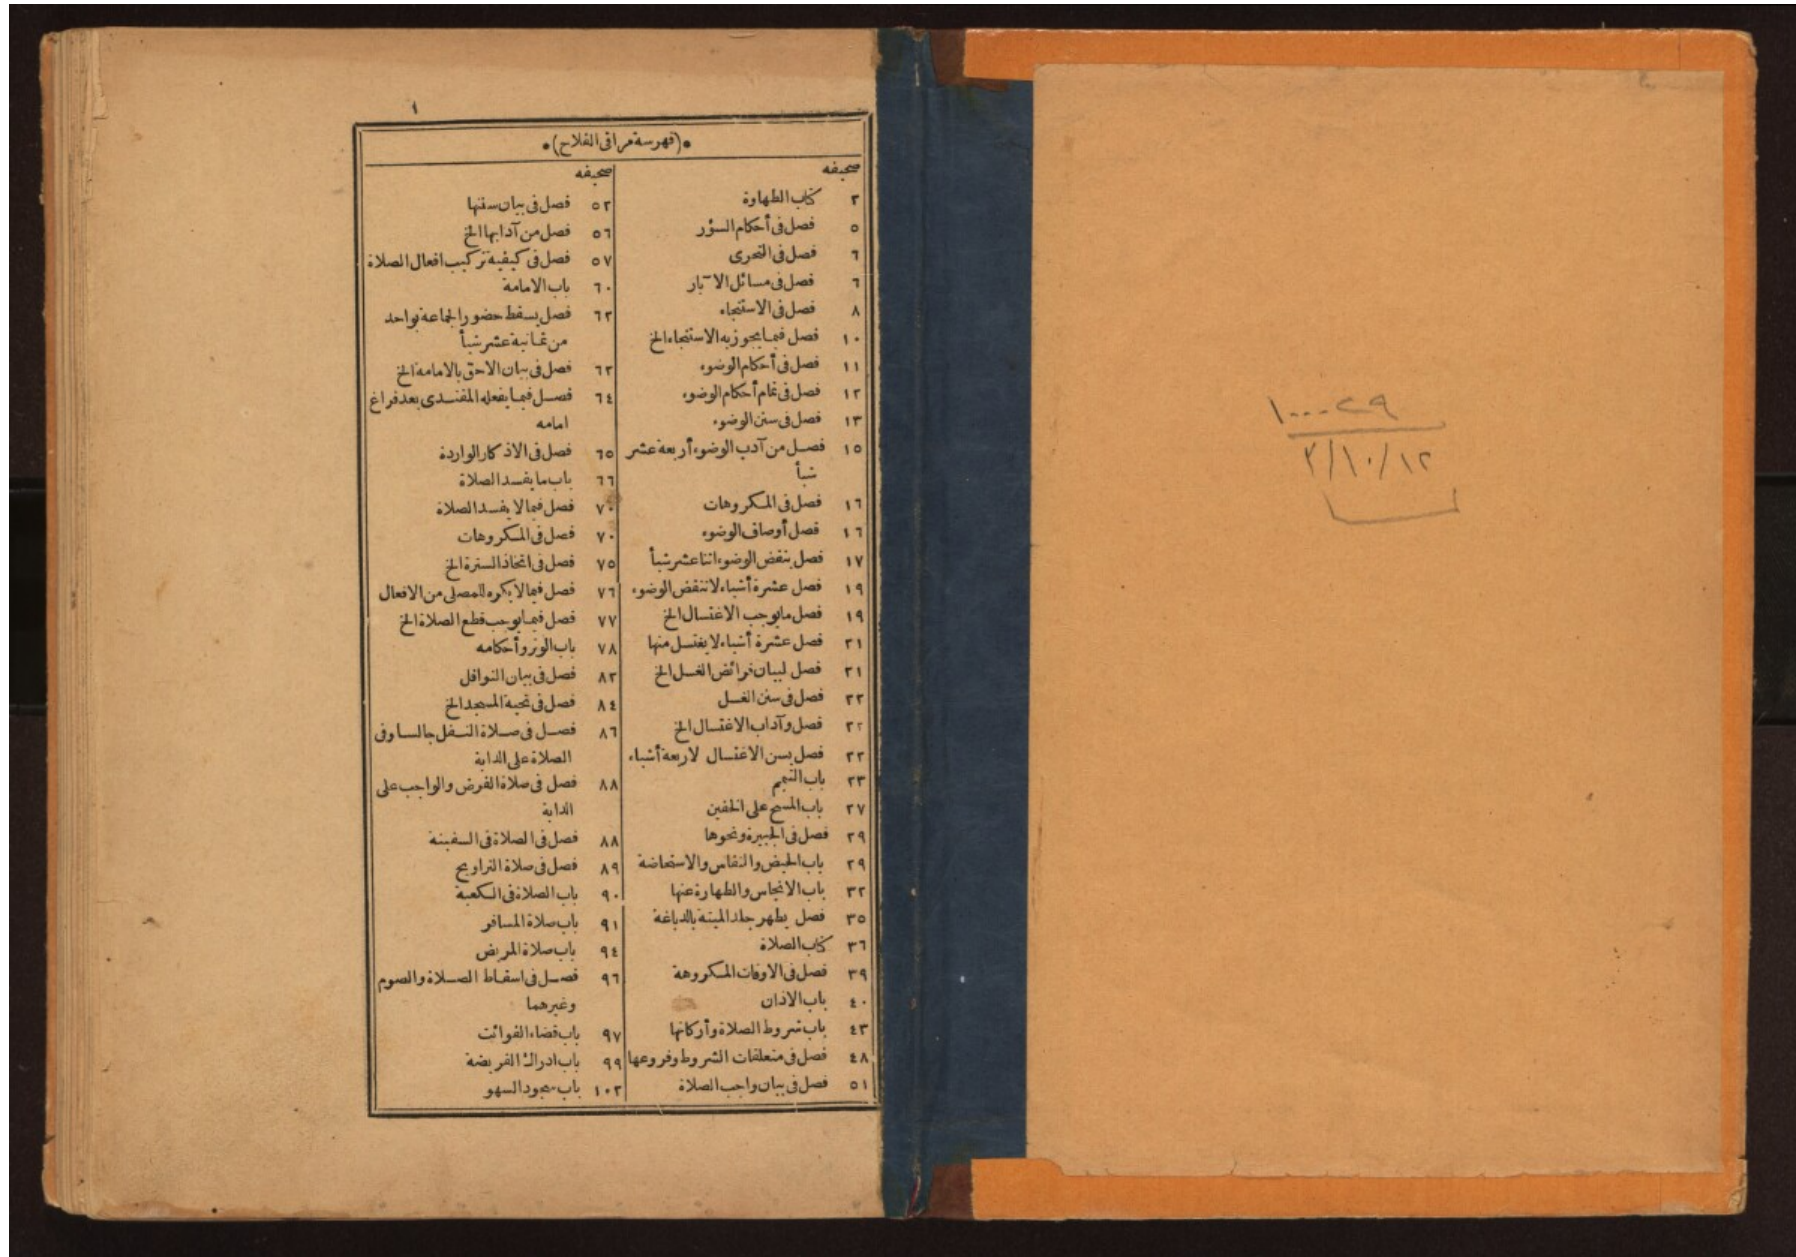 ١
*(فهرسة مراقى الفلاح)*
صحيفه
٢ كتاب الطهارة
٥ فصل فى أحكام السؤر
٦ فصل فى التحرى
٦ فصل فى مسائل الآبار
٨ فصل فى الاستنجاء
١٠ فصل فيما يجوز به الاستنجاء الخ
١١ فصل فى أحكام الوضوء
١٢ فصل فى تمام أحكام الوضوء
١٣ فصل فى سنن الوضوء
١٥ فصل من آدب الوضوء أربعة عشر
شيأ
١٦ فصل فى المكروهات
١٦ فصل أوصاف الوضوء
١٧ فصل ينقض الوضوء اثنا عشر شيأ
١٩ فصل عشرة أشياء لا تنقض الوضوء
١٩ فصل ما يوجب الاغتسال الخ
٢١ فصل عشرة أشياء لا يغتسل منها
٢١ فصل لبيان فرائض الغسل الخ
٢٢ فصل فى سنن الغسل
٢٢ فصل وآداب الاغتسال الخ
٢٢ فصل يسن الاغتسال لاربعة أشياء
٢٣ باب التيمم
٢٧ باب المسح على الخفين
٢٩ فصل فى الجبيرة ونحوها
٢٩ باب الحيض والنفاس والاستحاضة
٣٢ باب الانجاس والطهارة عنها
٣٥ فصل يطهر جلد الميتة بالدباغة
٣٦ كتاب الصلاة
٣٩ فصل فى الاوقات المكروهة
٤٠ باب الاذان
٤٣ باب شروط الصلاة وأركانها
٤٨ فصل فى متعلقات الشروط وفروعها
٥١ فصل فى بيان واجب الصلاة
صحيفه
٥٢ فصل فى بيان سننها
٥٦ فصل من آدابها الخ
٥٧ فصل فى كيفية تركيب افعال الصلاة
٦٠ باب الامامة
٦٢ فصل يسقط حضور الجماعة بواحد
من ثمانية عشر شيأ
٦٢ فصل فى بيان الاحق بالامامة الخ
٦٤ فصل فيما يفعله المقتدى بعد فراغ
امامه
٦٥ فصل فى الاذكار الواردة
٦٦ باب ما يفسد الصلاة
٧٠ فصل فيما لا يفسد الصلاة
٧٠ فصل فى المكروهات
٧٥ فصل فى اتخاذ السترة الخ
٧٦ فصل فيما لا يكره للمصلى من الافعال
٧٧ فصل فيما يوجب قطع الصلاة الخ
٧٨ باب الوتر وأحكامه
٨٢ فصل فى بيان النوافل
٨٤ فصل فى تحية المسجد الخ
٨٦ فصل فى صلاة النفل جالسا وفى
الصلاة على الدابة
٨٨ فصل فى صلاة الفرض والواجب على
الدابة
٨٨ فصل فى الصلاة فى السفينة
٨٩ فصل فى صلاة التراويح
٩٠ باب الصلاة فى الكعبة
٩١ باب صلاة المسافر
٩٤ باب صلاة المريض
٩٦ فصل فى اسقاط الصلاة والصوم
وغيرهما
٩٧ باب قضاء الفوائت
٩٩ باب ادراك الفريضة
١٠٢ باب سجود السهو